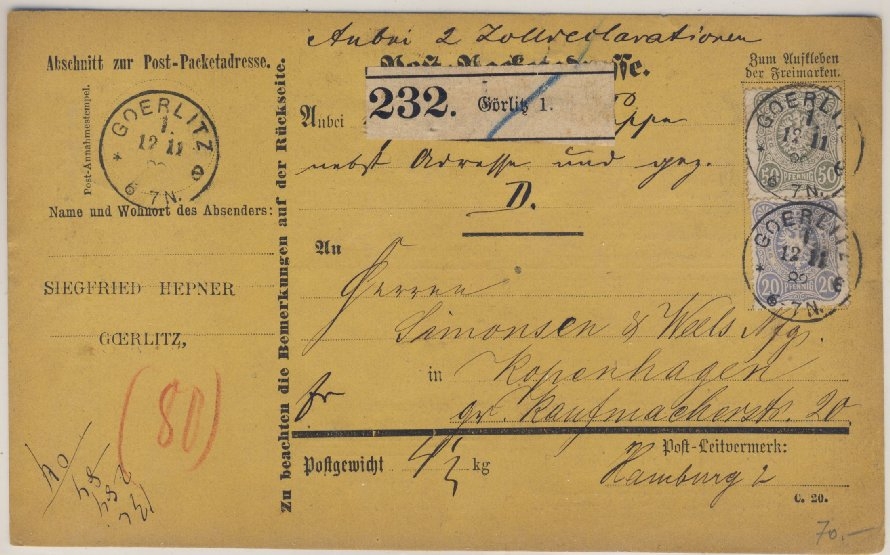 Abschnitt zur Post-Packetadresse.
Post-Annahmestempel.
GOERLITZ
1.
12 11
6-7N.
Name und Wohnort des Absenders:
SIEGFRIED HEPNER
GŒRLITZ,
(80)
Zu beachten die Bemerkungen auf der Rückseite.
Anbei 2 Zolldeclarationen
232. Görlitz 1.
Anbei
nebst Adresse und gez.
D.
An
Herren
Simonsen & Weels
in Kopenhagen
fr gr. Kaufmacherstr. 20
Postgewicht 4½ kg
Post-Leitvermerk:
Hamburg 2
C. 20.
Zum Aufkleben
der Freimarken.
GOERLITZ
1.
12 11
6-7N.
50 PFENNIG 50
GOERLITZ
1.
12 11
88
6-7N.
20 PFENNIG 20
70.—